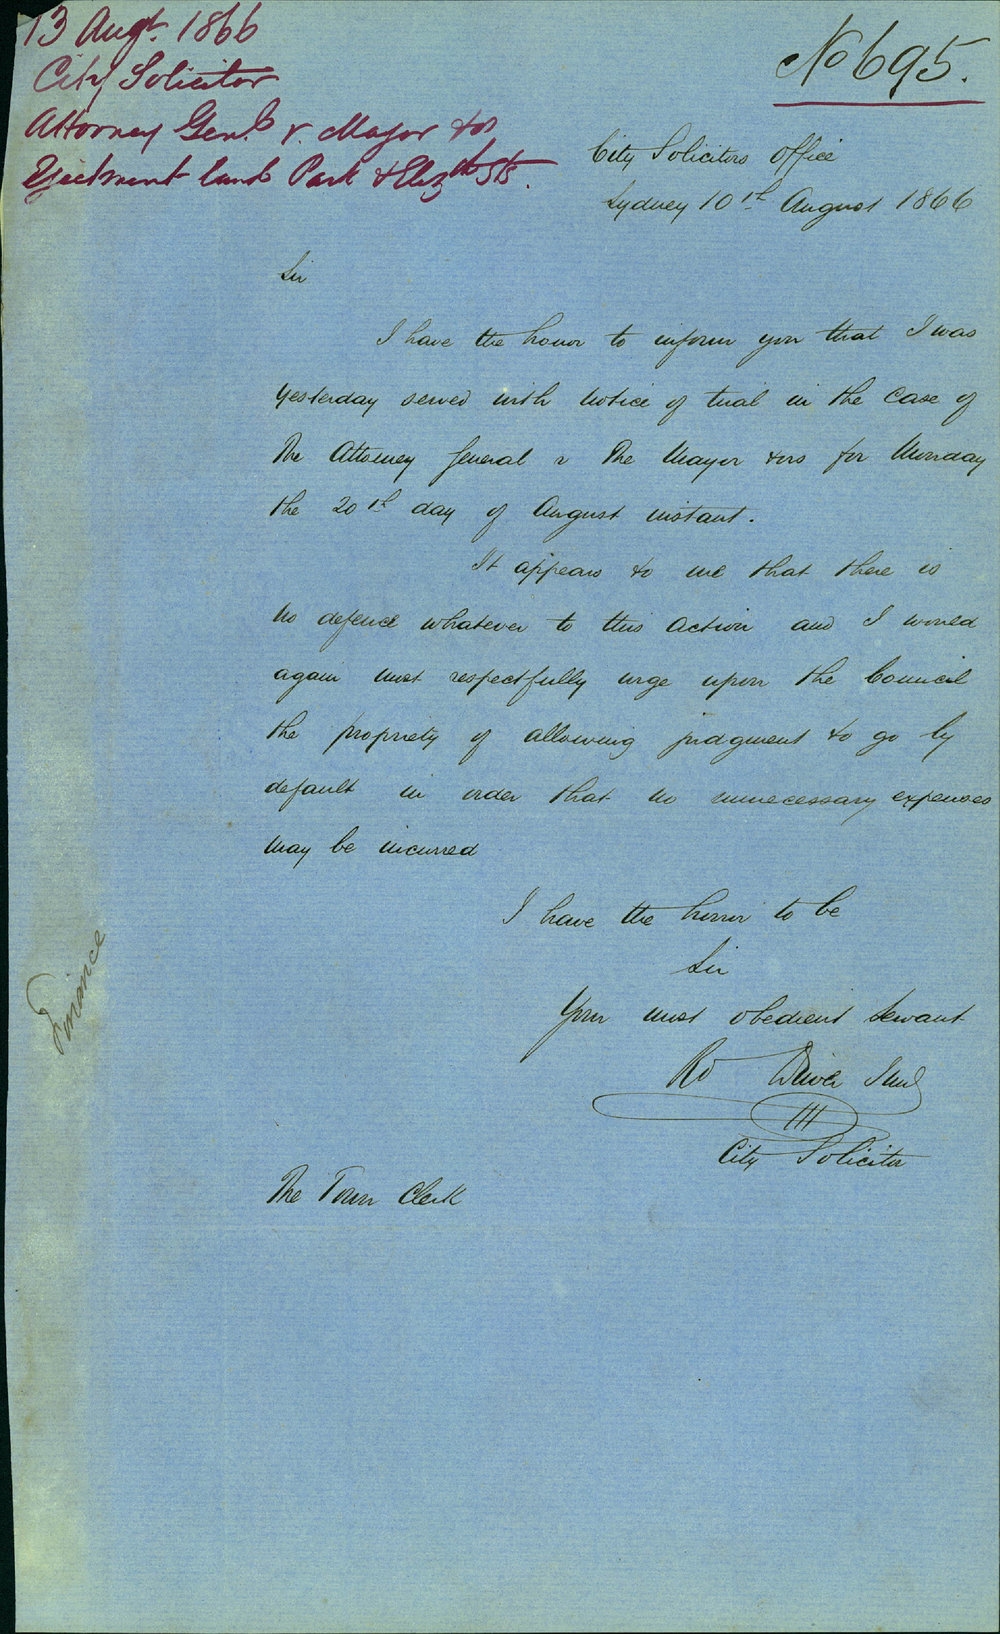 13 Augt. 1866
City Solicitor
Attorney Genl. v. Mayor & ors
Ejectment land Park & Elizth Sts.
No 695.
City Solicitors Office
Sydney 10th August 1866
Sir
I have the honor to inform you that I was
yesterday served with notice of trial in the case of
The Attorney General v The Mayor & ors for Monday
the 20th day of August instant.
It appears to me that there is
no defence whatever to this action and I would
again most respectfully urge upon the Council
the propriety of allowing judgment to go by
default in order that no unnecessary expenses
may be incurred
I have the honor to be
Sir
Your most obedient servant
Rd Driver Junr
City Solicitor
The Town Clerk
Finance